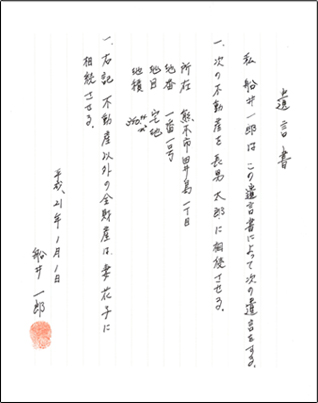 遺言書
私 船井一郎は この遺言書によって次の遺言をする。
一、次の不動産を長男太郎に相続させる。
所在 熊本市田井島一丁目
地番 一番一号
地目 宅地
地積
一、右記不動産以外の全財産は、妻花子に
相続させる。
平成21年1月1日
船井一郎